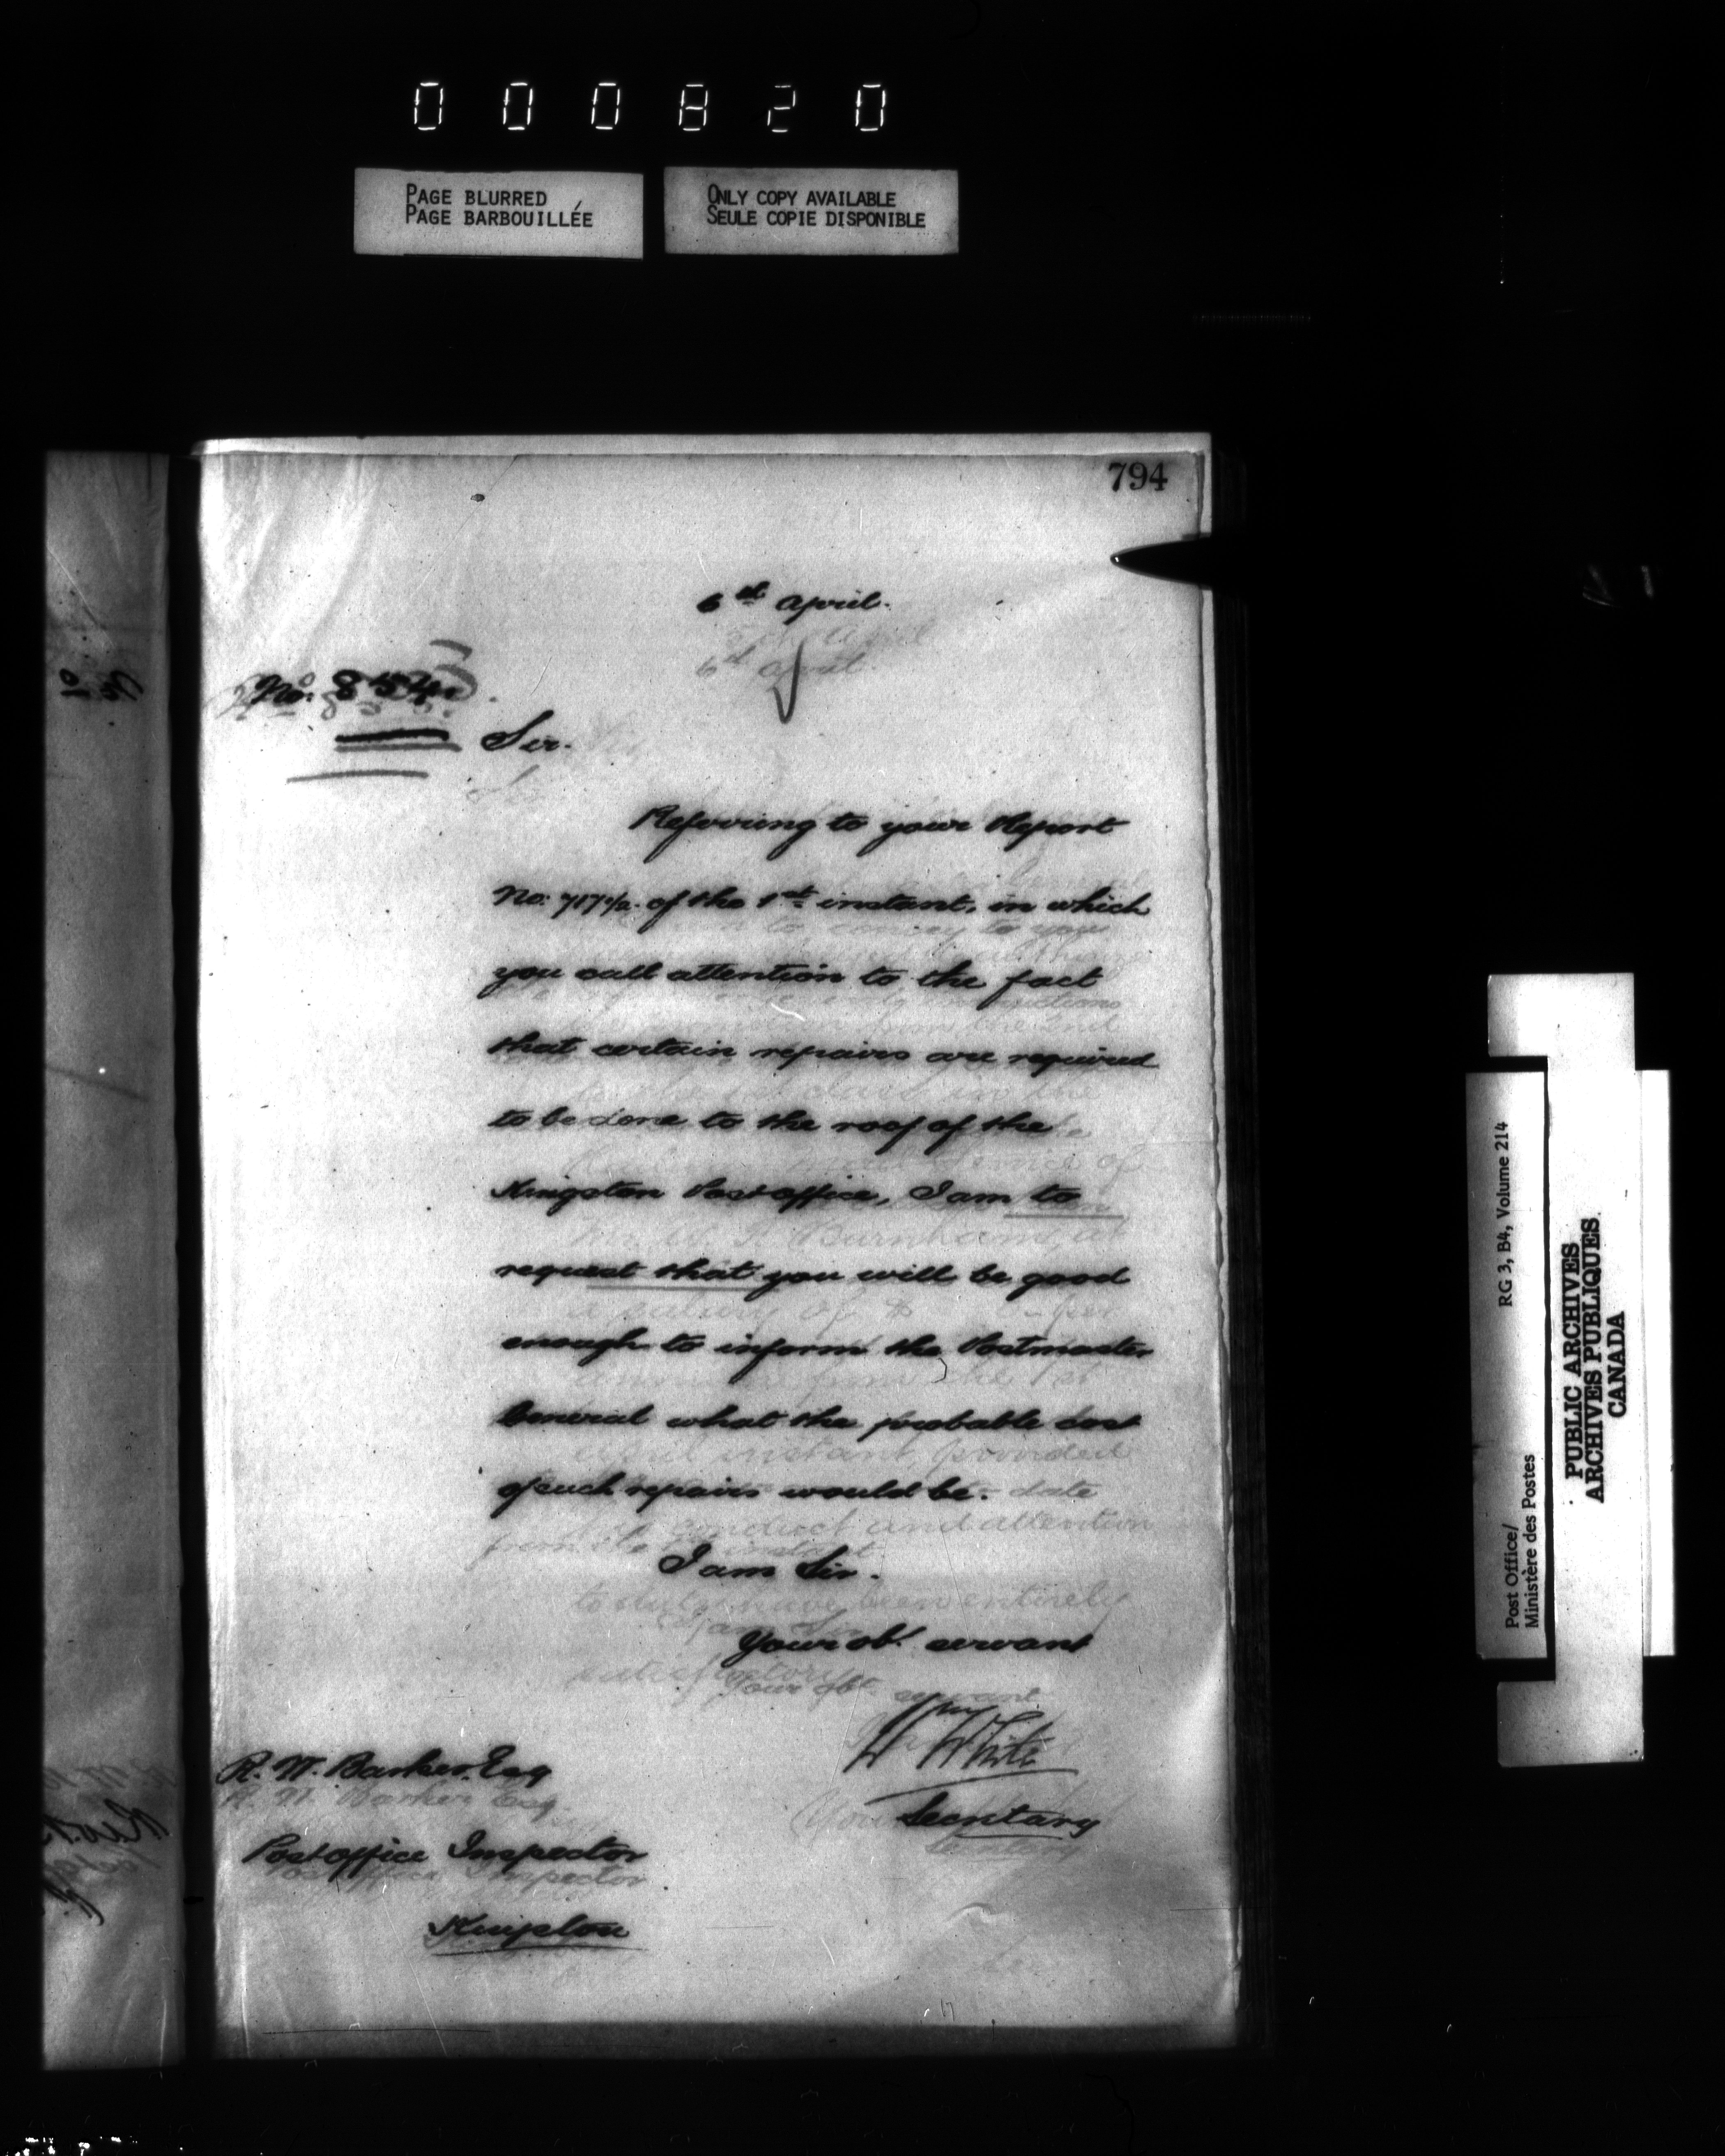 000820
PAGE BLURRED
PAGE BARBOUILLÉE
ONLY COPY AVAILABLE
SEULE COPIE DISPONIBLE
794
6th April.
No:
Sir.
Referring to your Report
No: 717½. of the 1st instant, in which
you call attention to the fact
that certain repairs are required
to be done to the roof of the
Kingston Post office, I am to
request that you will be good
enough to inform the Postmaster
General what the probable cost
of such repairs would be.
I am Sir.
Your obt servant
Wm White
Secretary
R. W. Barker, Esq
Post office Inspector
Kingston
RG 3, B4, Volume 214
Post Office/
Ministère des Postes
PUBLIC ARCHIVES
ARCHIVES PUBLIQUES
CANADA